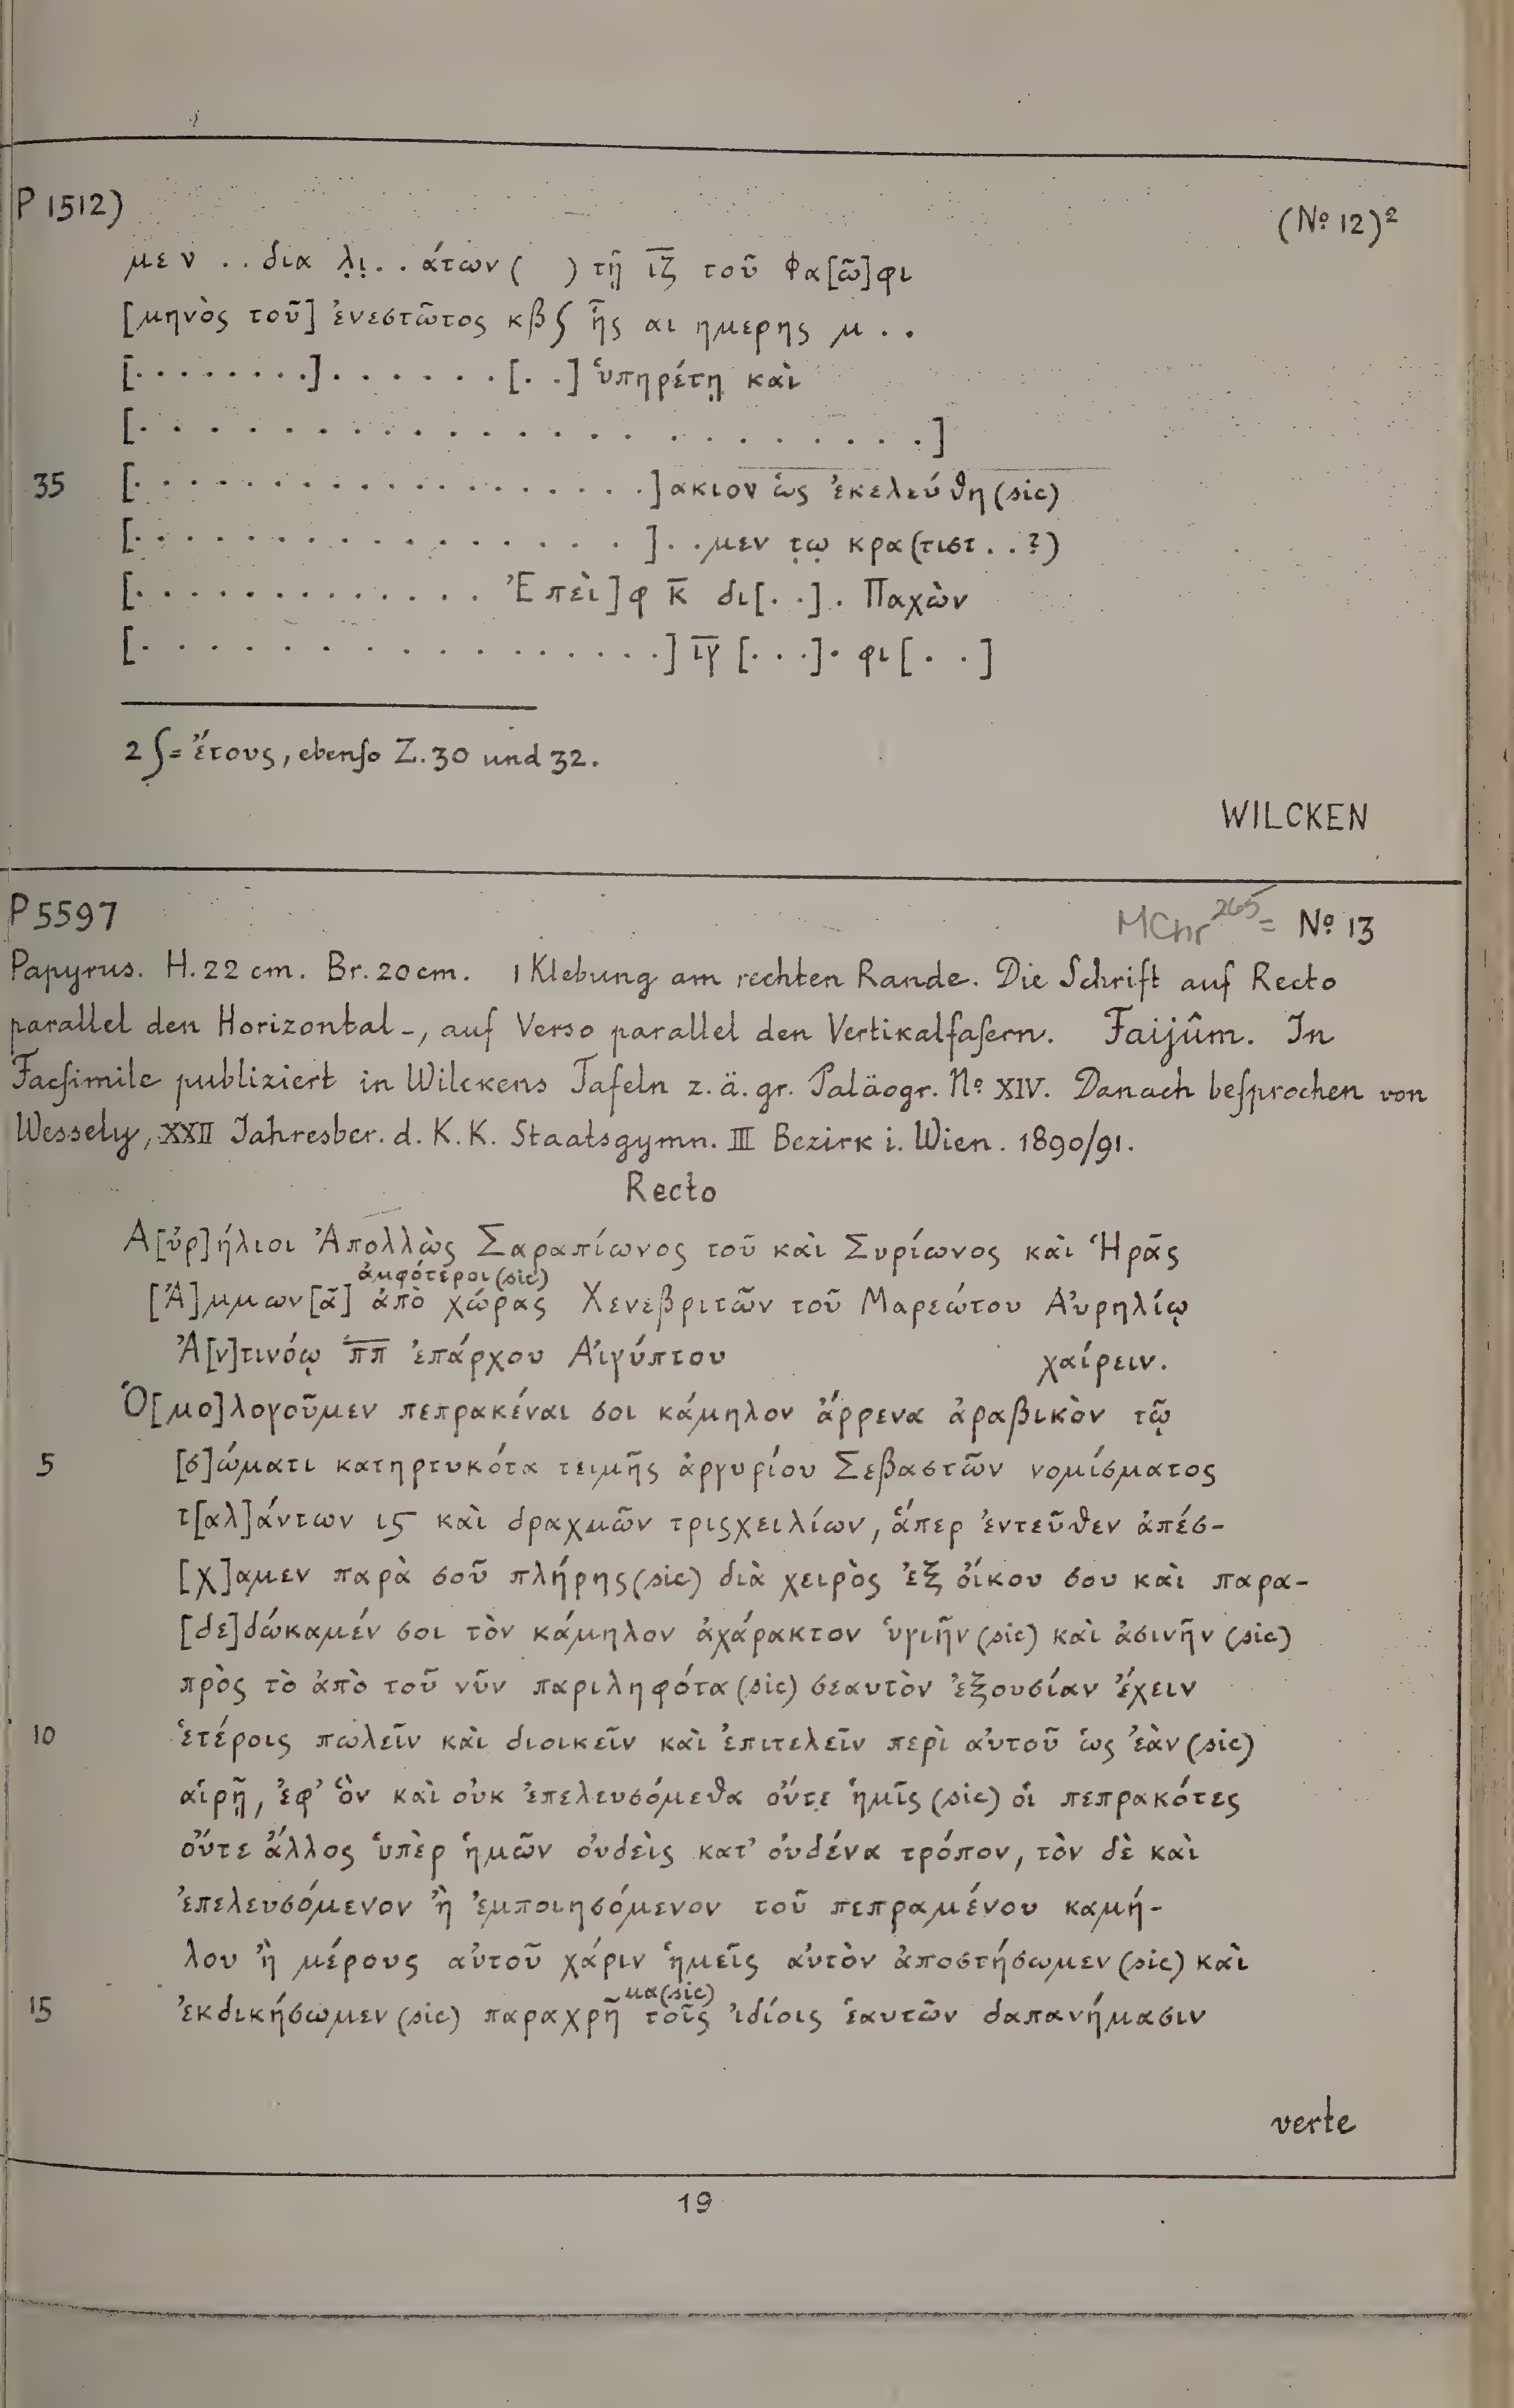 P 1512)
(Nº 12)²
μεν . . δια λ̣ι̣ . . άτων ( ) τῇ ι̅ζ̅ τοῦ Φα[ῶ]φι
[μηνὸς τοῦ] ἐνεστῶτος κβ ʃ ἧς αι ημερης μ . .
[. . . . . . . .] . . . . . . [. .] ὑπηρέτῃ καὶ
[. . . . . . . . . . . . . . . . . . . . . . .]
35 [. . . . . . . . . . . . . . . . . .]ακιον ὡς ἐκελεύθη (sic)
[. . . . . . . . . . . . . . . .] . . μεν τ̣ῳ̣ κρα(τιστ . . ?)
[. . . . . . . . . . . . . Ἐπεὶ]φ κ̅ δι[. .] . Παχὼν
[. . . . . . . . . . . . . . . . .] ι̅γ̅ [. . .] . φι[. .]
2 ʃ = ἔτους, ebenſo Z. 30 und 32.
WILCKEN
P 5597
MChr 265 = Nº 13
Papyrus. H. 22 cm. Br. 20 cm. 1 Klebung am rechten Rande. Die Schrift auf Recto
parallel den Horizontal-, auf Verso parallel den Vertikalfaſern. Faijûm. In
Facſimile publiziert in Wilckens Tafeln z. ä. gr. Paläogr. Nº XIV. Danach beſprochen von
Wessely, XXII Jahresber. d. K. K. Staatsgymn. III Bezirk i. Wien. 1890/91.
Recto
Α[ὐρ]ήλιοι Ἀπολλὼς Σαραπίωνος τοῦ καὶ Συρίωνος καὶ Ἡρᾶς
ἀμφότεροι (sic)
[Ἄ]μμων[ᾶ] ἀπὸ χώρας Χενεβριτῶν τοῦ Μαρεώτου Αὐρηλίῳ
Ἀ[ν]τινόῳ π̅π̅ ἐπάρχου Αἰγύπτου χαίρειν.
Ὁ[μο]λογοῦμεν πεπρακέναι σοι κάμηλον ἄρρενα ἀραβικὸν τῷ
5 [σ]ώματι κατηρτυκότα τειμῆς ἀργυρίου Σεβαστῶν νομίσματος
τ[αλ]άντων ιϛ καὶ δραχμῶν τρισχειλίων, ἅπερ ἐντεῦθεν ἀπέσ-
[χ]αμεν παρὰ σοῦ πλήρης (sic) διὰ χειρὸς ἐξ οἴκου σου καὶ παρα-
[δε]δώκαμέν σοι τὸν κάμηλον ἀχάρακτον ὑγιῆν (sic) καὶ ἀσινῆν (sic)
πρὸς τὸ ἀπὸ τοῦ νῦν παριληφότα (sic) σεαυτὸν ἐξουσίαν ἔχειν
10 ἑτέροις πωλεῖν καὶ διοικεῖν καὶ ἐπιτελεῖν περὶ αὐτοῦ ὡς ἐὰν (sic)
αἱρῇ, ἐφ’ ὃν καὶ οὐκ ἐπελευσόμεθα οὔτε ἡμῖς (sic) οἱ πεπρακότες
οὔτε ἄλλος ὑπὲρ ἡμῶν οὐδεὶς κατ’ οὐδένα τρόπον, τὸν δὲ καὶ
ἐπελευσόμενον ἢ ἐμποιησόμενον τοῦ πεπραμένου καμή-
λου ἢ μέρους αὐτοῦ χάριν ἡμεῖς αὐτὸν ἀποστήσωμεν (sic) καὶ
μα (sic)
15 ἐκδικήσωμεν (sic) παραχρῆ τοῖς ἰδίοις ἑαυτῶν δαπανήμασιν
verte
19